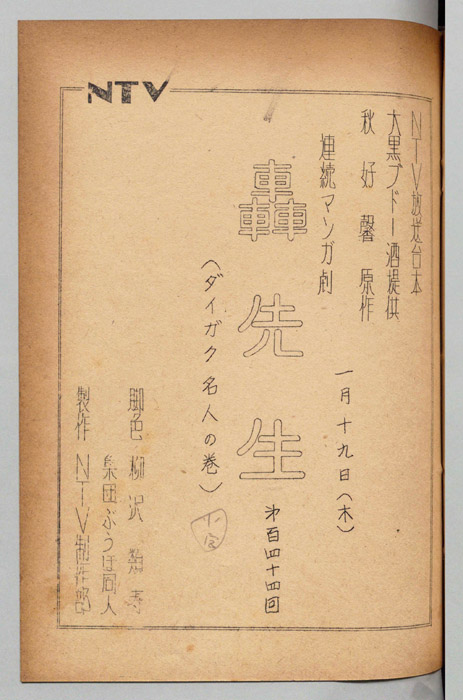 NTV
NTV放送台本
大黒ブドー酒提供
秋好馨原作
連続マンガ劇
轟先生
一月十九日(木)
第百四十四回
(ダイガク名人の巻)
脚色 柳沢類寿
集団ぶうほ同人
製作 NTV制作部